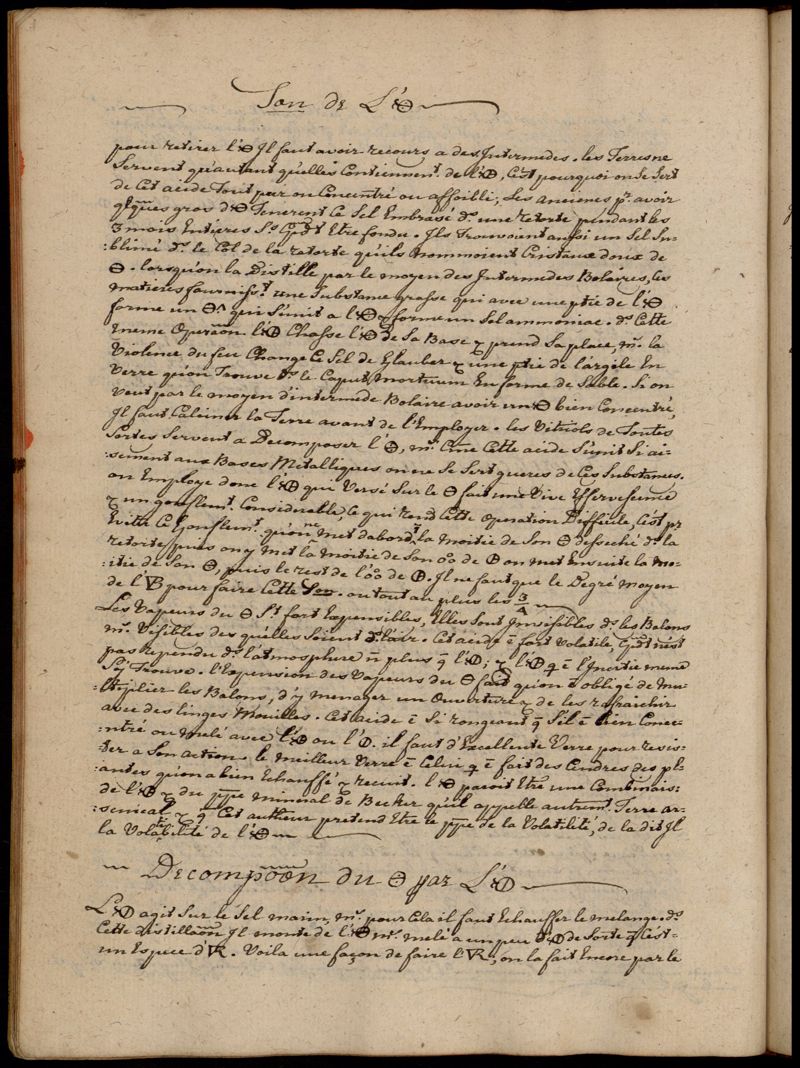 Son de L'🜔
pour retirer l'🜔 Il faut avoir recours a des Intermedes. les Terres ne
Servent qu'autant qu'elles Contiennent de l'🜖, C'est pourquoi on se Sert
de Cet acide Tout pur ou Concentré ou affoibli, Les anciens pr avoir
qlques gros d'🜔 Tenerent Ce Sel Embrasé ds une retorte pendant les
3 mois Entieres Ss Cpdt Etre fondu. Ils Trouvoient aussi un Sel Su-
:blimé ds le Col de la retorte qu'ils nommoient Cristaux doux de
🜔. lorsqu'on la Distille par le moyen des Intermedes Bolaires, Ces
matieres fournisst une Substance grasse qui avec une ptie de l'🜔
forme un qui S'unit a l' forme un Sel ammoniac. ds Cette
meme Operaōn l'🜖 Chasse l'🜔 de Sa Base & prend Sa place, ms la
Violence du feu Change Ce Sel de Glauber & une ptie de l'argile En
Verre qu'on Trouve ds le Caput Mortuum En forme de Sable. Si on
Veut par le moyen d'intermede Bolaire avoir un 🜔 bien Concentré,
Il faut Calciner la Terre avant de l'Employer. les Vitriols de Toutes
Sortes Servent a Decomposer l'🜔, ms Cme Cette acide S'unit Si ai-
:sement aux Bases Metalliques on ne Se Sert gueres de Ces Substances.
on Employe donc l'🜖 qui Versé Sur le 🜔 fait une Vive Effervescence
& un gonflemt Considerable, Ce qui rend Cette operation Difficile, C'est pr
Evite Ce Gonflemt qu'on ne Met d'abord la Moitie de Son 🜔 desseché ds la
retorte, puis on y Met la Moitie de Son de 🜖 on met Ensuite la Mo-
:itie de Son 🜔, puis le rest de l' de 🜖. Il ne faut que le Degré Moyen
de l' pour faire Cette ou tout au plus les 3/4
Les Vapeurs du 🜔 St fort Expensibles, Elles Sont Invisibles ds les Balons
ms Visibles des qu'elles Soient ds l'air. Cet acide ē fort Volatile, Cpdt n'est
pas Rependu ds l'atmosphere ñ plus q l'; & l'🜖 q ē l'Inertie meme
S'y Trouve. l'Expension des Vapeurs du 🜔 fait qu'on ē obligé de Mu-
:ltiplier les Balons, d'y menager un Ouverture & de les rafraichir
avec des linges Mouilles. Cet acide ē Si rongeant q S'il ē bien Concen-
:ntré ou melé avec l' ou l'🜖. il faut d'Excellente Verre pour resis-
:ter a Son action le meilleur Verre ē Celui q ē fait des Cendres des pl-
:antes qu'on a bien Echauffé & recuit. l'🜔 paroit Etre une Combinais:
de l'🜖 & du ppe mineral de Becker qu'il appelle autremt Terre ar-
:senicale & q Cet autheur pretend Etre le ppe de la Volatilité, de la dit Il
la Volatibilité de l'🜔
Decompoōn du 🜔 par L'🜖
L'🜖 agit Sur le Sel marin, ms pour Cela il faut Echauffer le melange. ds
Cette distillaōn Il monte de l'🜔 ms melé a un peu d'🜖 de Sorte q C'est
un Espece d'🜆. Voila une façon de faire l'🜆, on la fait Encore par le